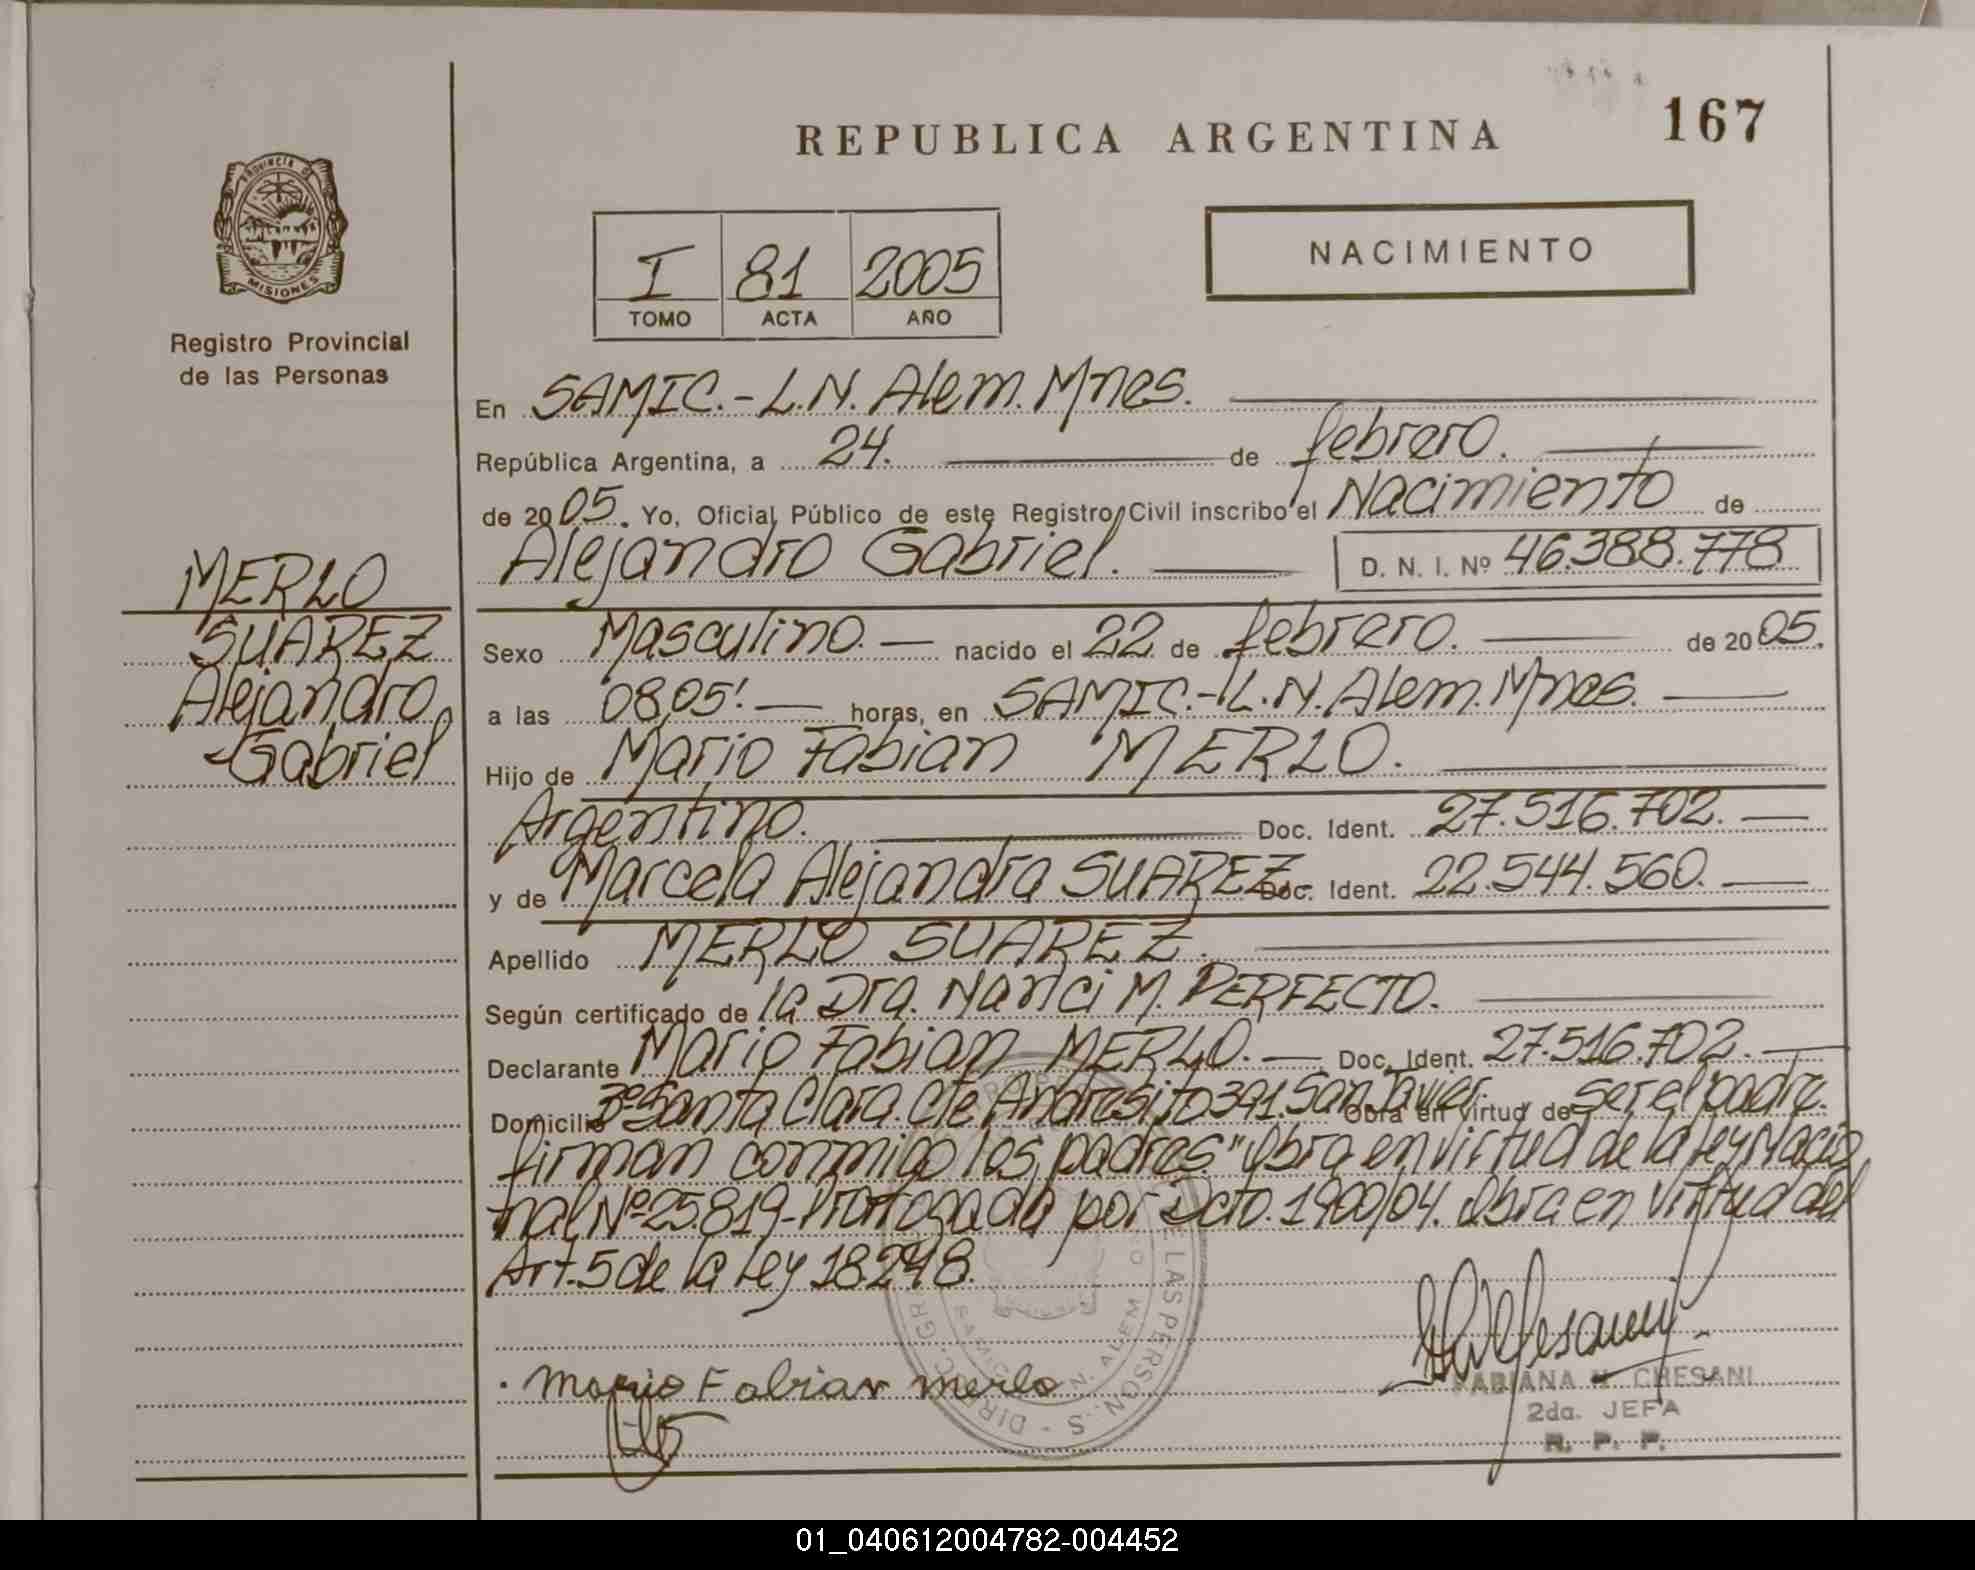 167
REPUBLICA ARGENTINA
PROVINCIA DE
MISIONES
Registro Provincial
de las Personas
I 81 2005
TOMO ACTA AÑO
NACIMIENTO
En SAMIC.-L.N. Alem. Mnes.
República Argentina, a 24. de febrero.
de 2005. Yo, Oficial Público de este Registro Civil inscribo el Nacimiento de
Alejandro Gabriel. D. N. I. Nº 46.388.778
MERLO
SUAREZ
Alejandro
Gabriel
Sexo Masculino. nacido el 22 de febrero. de 2005.
a las 08,05'. horas, en SAMIC.-L.N. Alem. Mnes.
Hijo de Mario Fabian MERLO.
Argentino. Doc. Ident. 27.516.702.
y de Marcela Alejandra SUAREZ- Doc. Ident. 22.544.560.
Apellido MERLO SUAREZ.
Según certificado de la Dra. Nanci M. PERFECTO.
Declarante Mario Fabian MERLO. Doc. Ident. 27.516.702.
Domicilio Bº Santa Clara. Cte Andresito 391. San Javier. Obra en virtud de ser el padre.
firman conmigo los padres" Obra en virtud de la Ley Nacio
nal Nº 25.819-Prorrogada por Dcto. 1900/04. Obra en virtud del
Art. 5 de la Ley 18.248.
Mario Fabian Merlo
FABIANA CHESANI
2da. JEFA
R. P. P.
DE LAS PERSONAS - DIREC. GR
N. ALEM
01_040612004782-004452